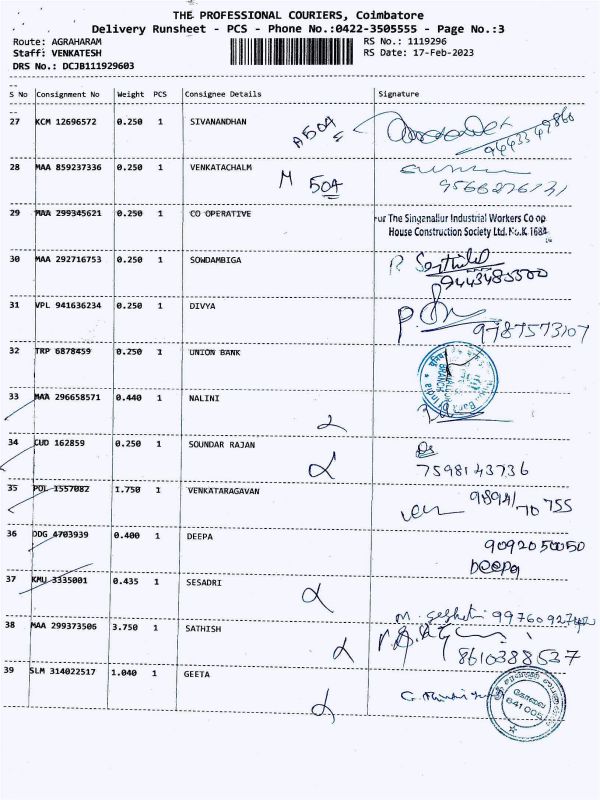 THE PROFESSIONAL COURIERS, Coimbatore
Delivery Runsheet - PCS - Phone No.:0422-3505555 - Page No.:3
Route: AGRAHARAM RS No.: 1119296
Staff: VENKATESH RS Date: 17-Feb-2023
DRS No.: DCJB111929603
S No Consignment No Weight PCS Consignee Details Signature
27 KCM 12696572 0.250 1 SIVANANDHAN A 50A
28 MAA 859237336 0.250 1 VENKATACHALM M 50A
9566276131
29 MAA 299345621 0.250 1 CO OPERATIVE
The Singanallur Industrial Workers Co op
House Construction Society Ltd. No.K 1684
30 MAA 292716753 0.250 1 SOWDAMBIGA
31 VPL 941636234 0.250 1 DIVYA
9787573107
32 TRP 6878459 0.250 1 UNION BANK
33 MAA 296658571 0.440 1 NALINI
34 CUD 162859 0.250 1 SOUNDAR RAJAN
7598143736
35 POL 1557082 1.750 1 VENKATARAGAVAN
98941 70755
36 ODG 4703939 0.400 1 DEEPA 9092050050
Deepa
37 KMU 3335001 0.435 1 SESADRI
38 MAA 299373506 3.750 1 SATHISH
8610388537
39 SLM 314022517 1.040 1 GEETA
கோவை
641005